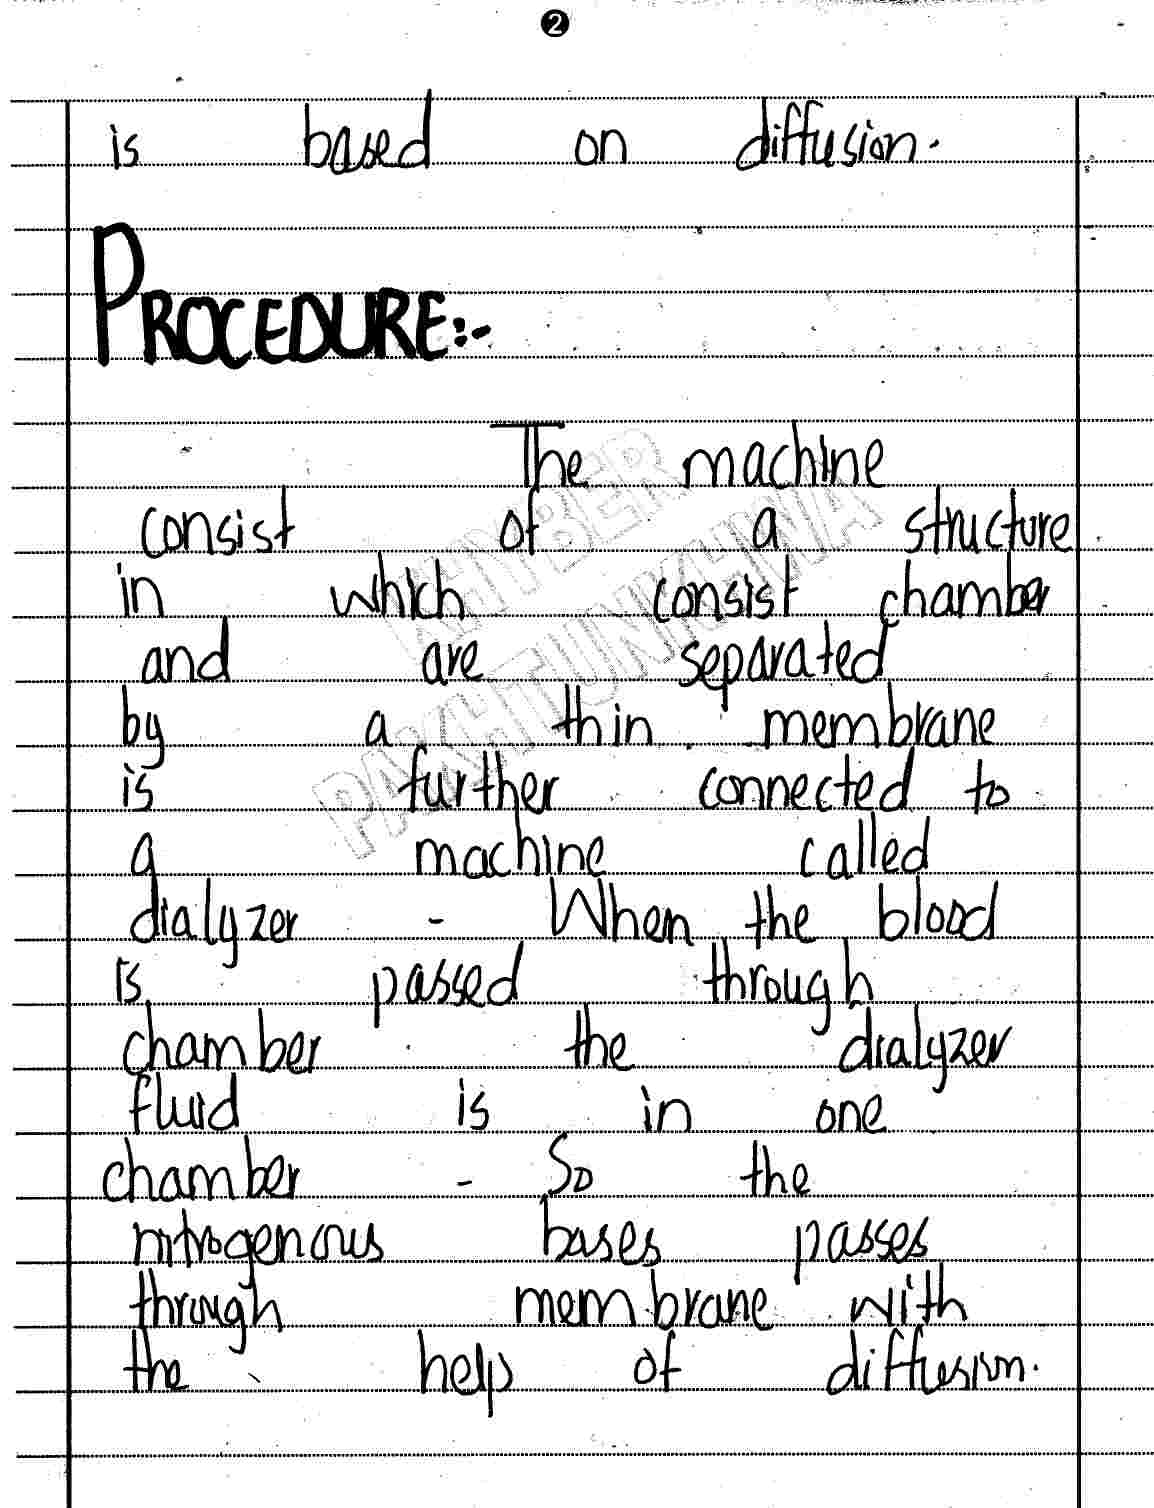 2
is based on diffusion.
PROCEDURE:-
The machine
consist of a structure
in which consist chamber
and are separated
by a thin membrane
is further connected to
a machine called
dialyzer - When the blood
is passed through
chamber the dialyzer
fluid is in one
chamber - So the
nitrogenous bases passes
through membrane with
the help of diffusion.
KHYBER
PAKHTUNKHWA